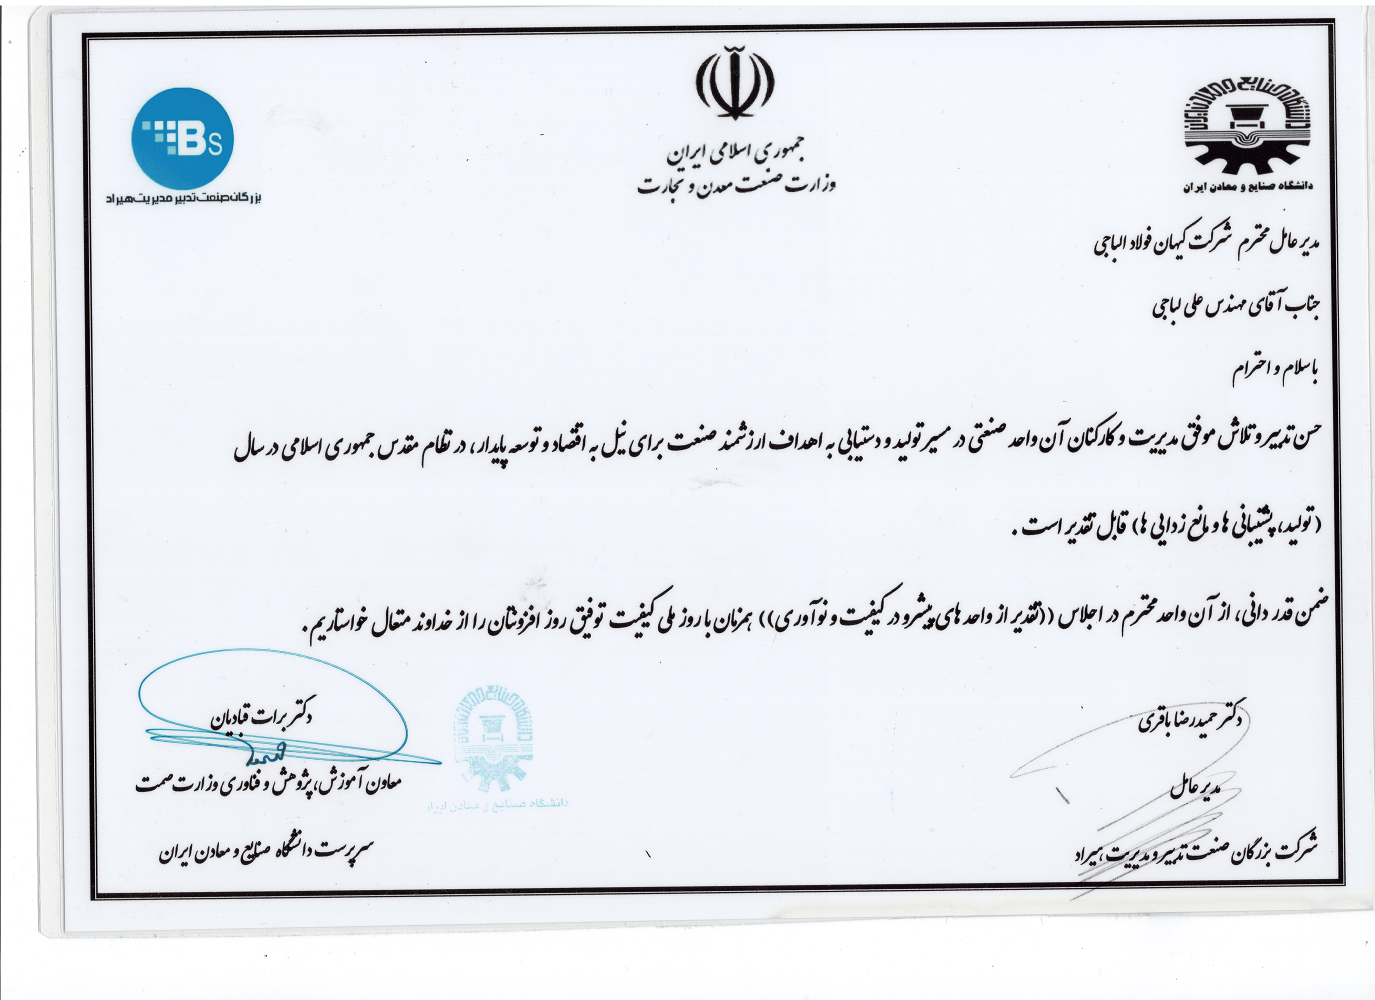 جمهوری اسلامی ایران
وزارت صنعت معدن و تجارت
دانشگاه صنایع و معادن ایران
Bs
بزرگان صنعت تدبیر مدیریت هیراد
مدیر عامل محترم شرکت کیهان فولاد الباجی
جناب آقای مهندس علی لباجی
با سلام و احترام
حسن تدبیر و تلاش موفق مدیریت و کارکنان آن واحد صنعتی در مسیر تولید و دستیابی به اهداف ارزشمند صنعت برای نیل به اقتصاد و توسعه پایدار، در نظام مقدس جمهوری اسلامی در سال
(تولید، پشتیبانی ها و مانع زدایی ها) قابل تقدیر است .
ضمن قدر دانی، از آن واحد محترم در اجلاس ((تقدیر از واحد های پیشرو در کیفیت و نوآوری)) همزمان با روز ملی کیفیت توفیق روز افزونتان را از خداوند متعال خواستاریم.
دکتر حمیدرضا باقری
مدیر عامل
شرکت بزرگان صنعت تدبیر و مدیریت هیراد
دانشگاه صنایع و معادن ایران
دکتر برات قبادیان
معاون آموزش، پژوهش و فناوری وزارت صمت
سرپرست دانشگاه صنایع و معادن ایران